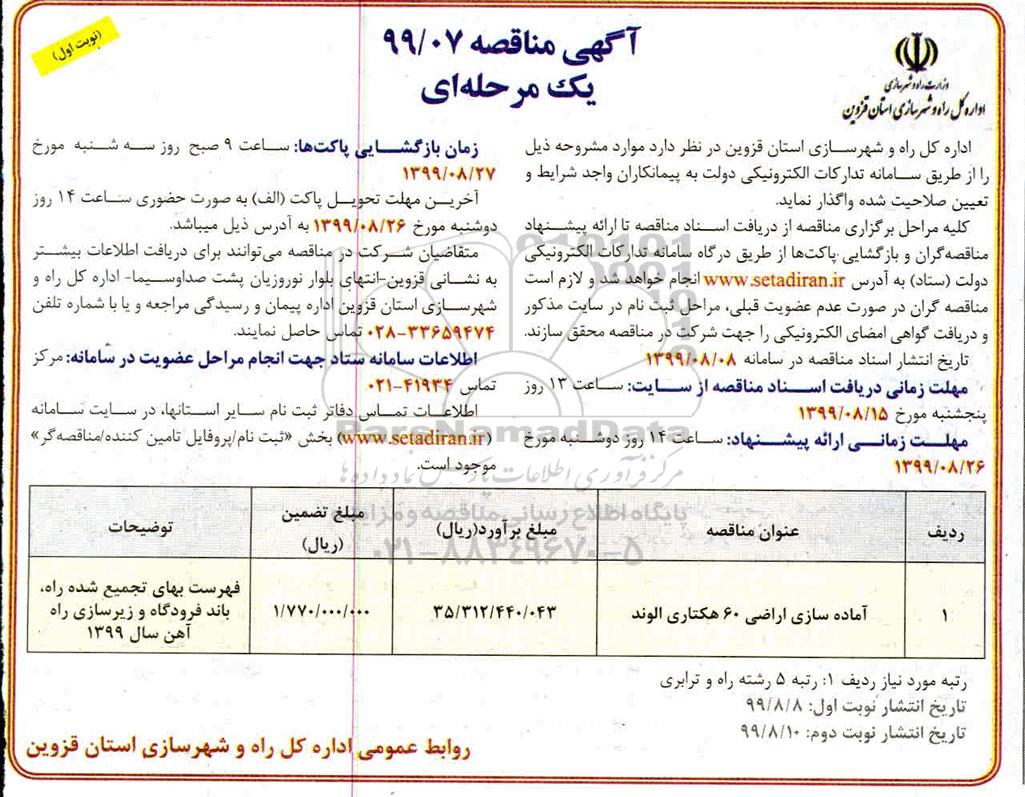 (نوبت اول)
آگهی مناقصه ۹۹/۰۷
یک مرحله‌ای
وزارت راه و شهرسازی
اداره کل راه و شهرسازی استان قزوین
اداره کل راه و شهرسازی استان قزوین در نظر دارد موارد مشروحه ذیل
را از طریق سامانه تدارکات الکترونیکی دولت به پیمانکاران واجد شرایط و
تعیین صلاحیت شده واگذار نماید.
کلیه مراحل برگزاری مناقصه از دریافت اسناد مناقصه تا ارائه پیشنهاد
مناقصه‌گران و بازگشایی پاکت‌ها از طریق درگاه سامانه تدارکات الکترونیکی
دولت (ستاد) به آدرس www.setadiran.ir انجام خواهد شد و لازم است
مناقصه گران در صورت عدم عضویت قبلی، مراحل ثبت نام در سایت مذکور
و دریافت گواهی امضای الکترونیکی را جهت شرکت در مناقصه محقق سازند.
تاریخ انتشار اسناد مناقصه در سامانه ۱۳۹۹/۰۸/۰۸
مهلت زمانی دریافت اسناد مناقصه از سایت: ساعت ۱۳ روز
پنجشنبه مورخ ۱۳۹۹/۰۸/۱۵
مهلت زمانی ارائه پیشنهاد: ساعت ۱۴ روز دوشنبه مورخ
۱۳۹۹/۰۸/۲۶
زمان بازگشایی پاکت‌ها: ساعت ۹ صبح روز سه شنبه مورخ
۱۳۹۹/۰۸/۲۷
آخرین مهلت تحویل پاکت (الف) به صورت حضوری ساعت ۱۴ روز
دوشنبه مورخ ۱۳۹۹/۰۸/۲۶ به آدرس ذیل میباشد.
متقاضیان شرکت در مناقصه می‌توانند برای دریافت اطلاعات بیشتر
به نشانی قزوین-انتهای بلوار نوروزیان پشت صداوسیما- اداره کل راه و
شهرسازی استان قزوین اداره پیمان و رسیدگی مراجعه و یا با شماره تلفن
۰۲۸-۳۳۶۵۹۴۷۴ تماس حاصل نمایند.
اطلاعات سامانه ستاد جهت انجام مراحل عضویت در سامانه: مرکز
تماس ۴۱۹۳۴-۰۲۱
اطلاعات تماس دفاتر ثبت نام سایر استانها، در سایت سامانه
(www.setadiran.ir) بخش «ثبت نام/پروفایل تامین کننده/مناقصه‌گر»
موجود است.
ParsNamadData
مرکز فرآوری اطلاعات پارس نماد داده ها
پایگاه اطلاع رسانی مناقصه و مزایده
۰۲۱-۸۸۳۴۹۶۷۰-۵
ردیف عنوان مناقصه مبلغ برآورد(ریال) مبلغ تضمین (ریال) توضیحات
۱ آماده سازی اراضی ۶۰ هکتاری الوند ۳۵/۳۱۲/۴۴۰/۰۴۳ ۱/۷۷۰/۰۰۰/۰۰۰ فهرست بهای تجمیع شده راه،
باند فرودگاه و زیرسازی راه
آهن سال ۱۳۹۹
رتبه مورد نیاز ردیف ۱: رتبه ۵ رشته راه و ترابری
تاریخ انتشار نوبت اول: ۹۹/۸/۸
تاریخ انتشار نوبت دوم: ۹۹/۸/۱۰
روابط عمومی اداره کل راه و شهرسازی استان قزوین